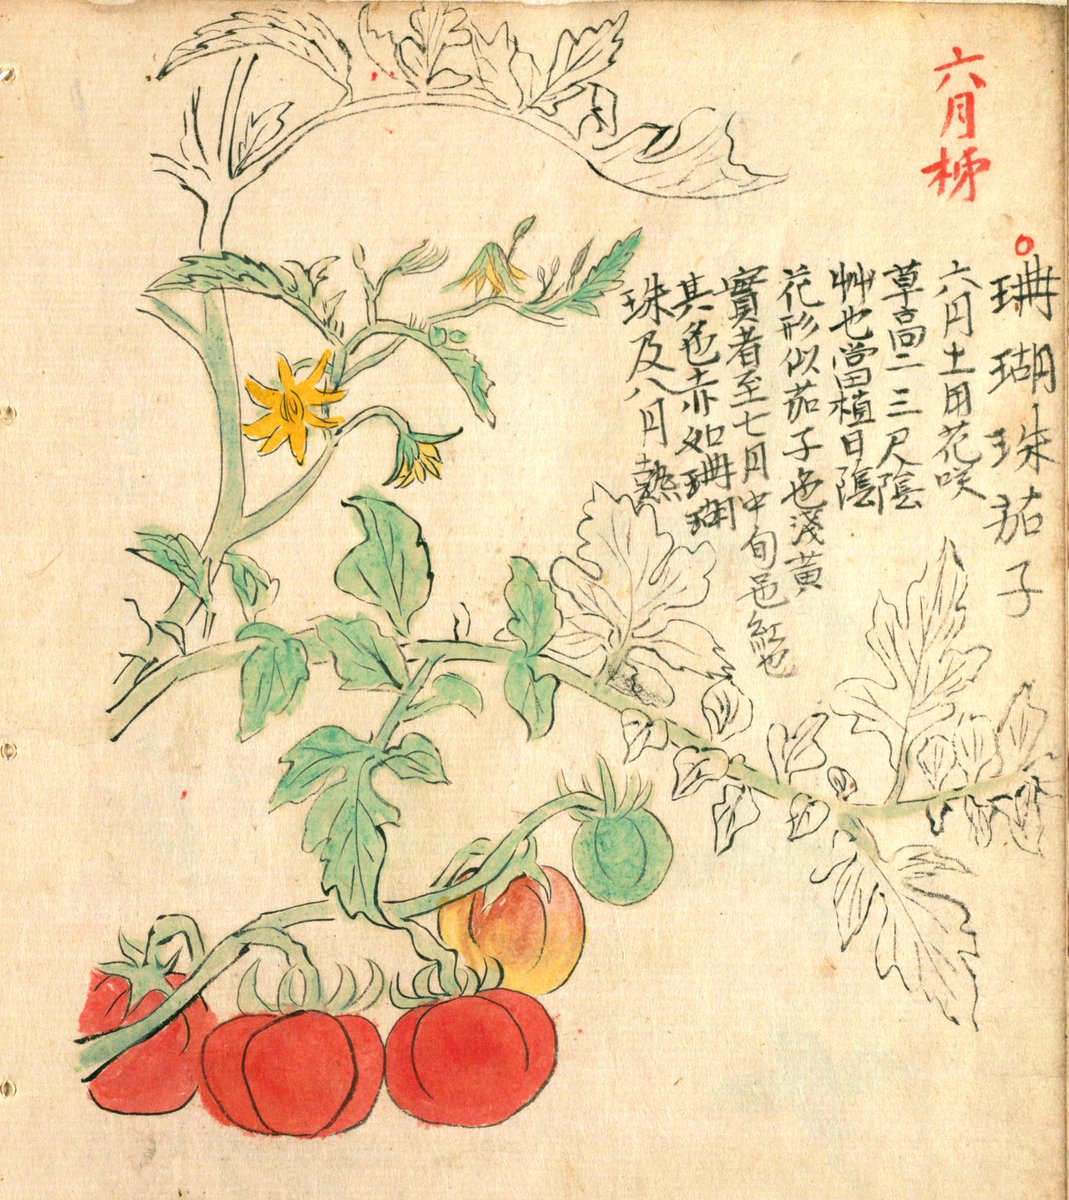 六月梯
珊瑚珠茄子
六月土用花咲
草高二三尺陰
艸也當植日陰
花形似茄子色淺黃
實者至七月中旬色紅也
其色赤如珊瑚
珠及八月熟